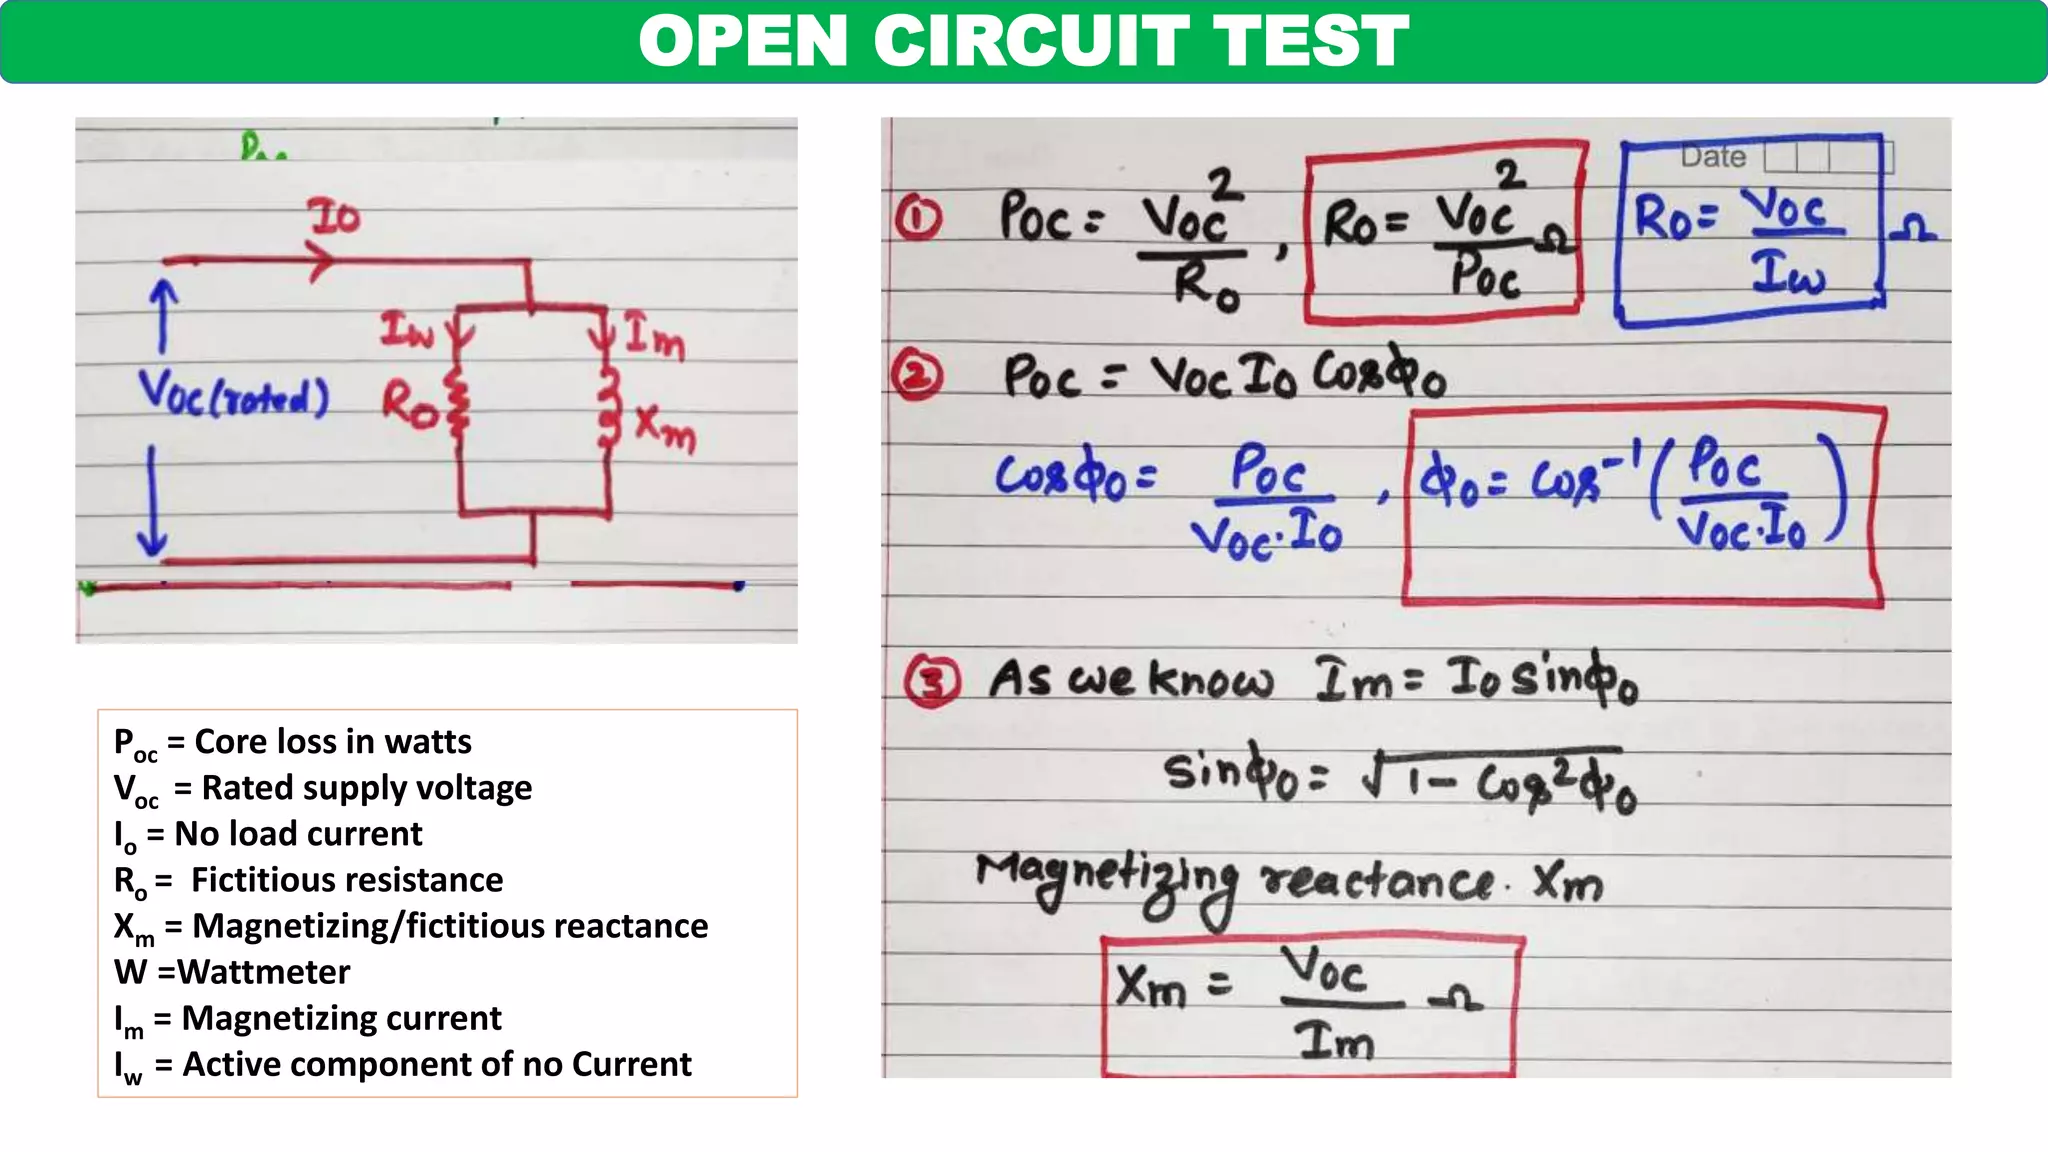 OPEN CIRCUIT TEST
Io
Iw
Im
Voc(rated)
Ro
Xm
Poc = Core loss in watts
Voc = Rated supply voltage
Io = No load current
Ro = Fictitious resistance
Xm = Magnetizing/fictitious reactance
W =Wattmeter
Im = Magnetizing current
Iw = Active component of no Current
Date
① Poc = Voc²/Ro , Ro = Voc²/Poc Ω Ro = Voc/Iw Ω
② Poc = Voc Io Cosϕo
Cosϕo = Poc/Voc·Io , ϕo = Cos⁻¹(Poc/Voc·Io)
③ As we know Im = Io sinϕo
sinϕo = √1 - Cos²ϕo
Magnetizing reactance. Xm
Xm = Voc/Im Ω